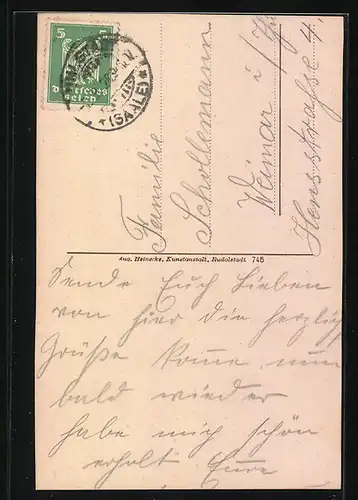 5 5
Deutsches
Reich
(SAALE)
Familie
Schollemann
Weimar i/Thür
Hensstraße 4.
Aug. Heinecke, Kunstanstalt, Rudolstadt 746
Sende Euch Lieben
von hier die herzlich
Grüße komme nun
bald wieder
habe mich schön
erholt Eure